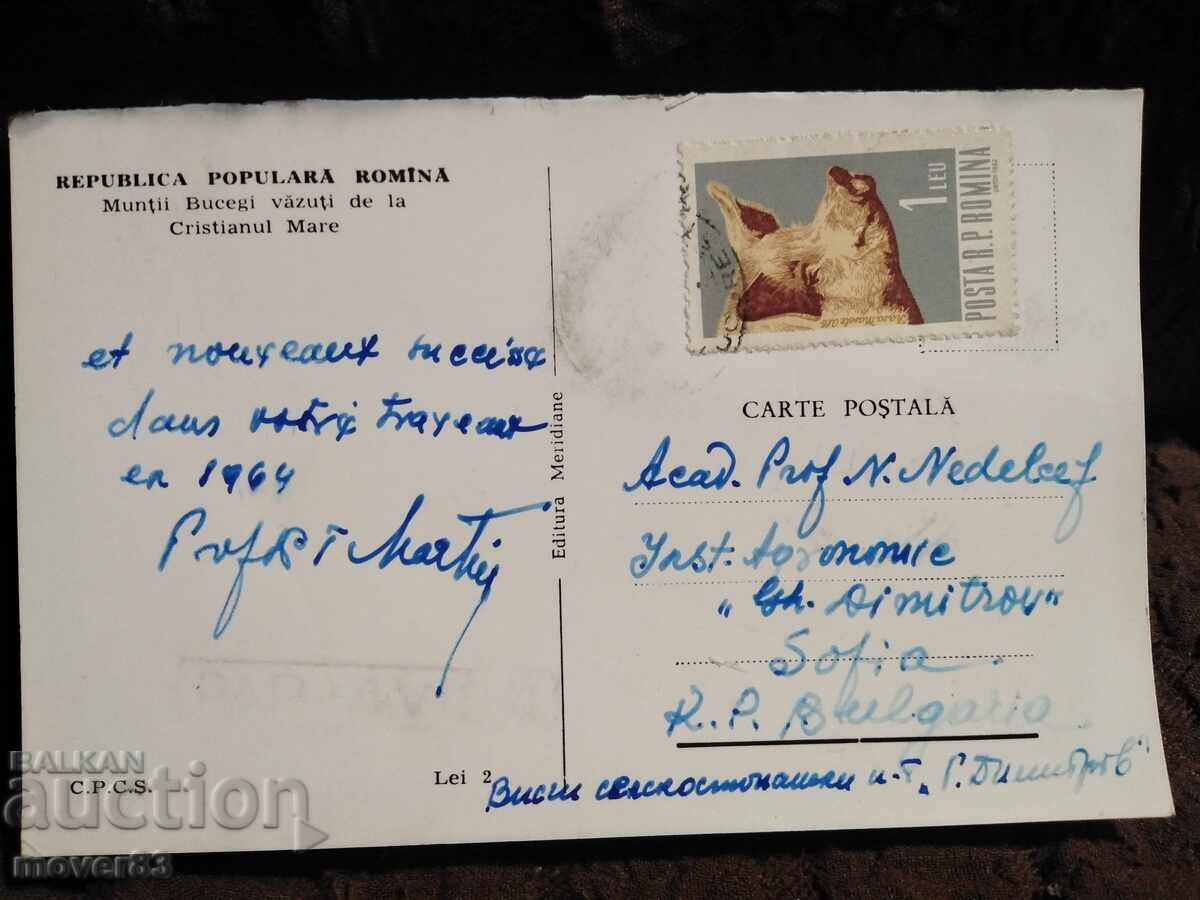 REPUBLICA POPULARĂ ROMÎNĂ
Munții Bucegi văzuți de la
Cristianul Mare
et nouveaux succès
dans votre traveaux
en 1964
Prof
C.P.C.Ș.
Lei 2
Editura Meridiane
1 LEU
POSTA R.P. ROMINA
CARTE POȘTALĂ
Acad. Prof N. Nedelcef
Inst. Agronomic
"Gh. Dimitrov"
Sofia.
R. P. Bulgaria
Висш селскостопански и-т „Г. Димитров"
BALKAN
auction
mover83